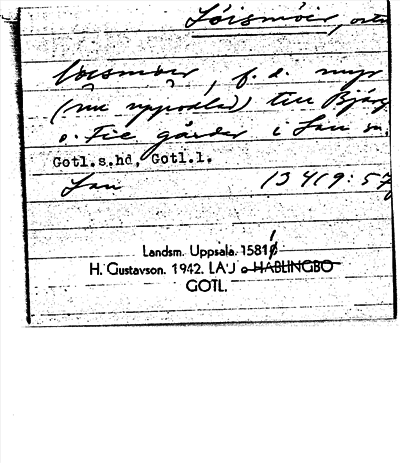 Loismoir, ortn
Loismoir, f. d. myr
(nu uppodlad) till Bjärg
o. Fie gårdar i Lau sn.
Gotl.s.hd, Gotl.l.
Lau 13419:57
Landsm. Uppsala. 15818
H. Gustavson. 1942. LAU o HABLINGBO
GOTL.